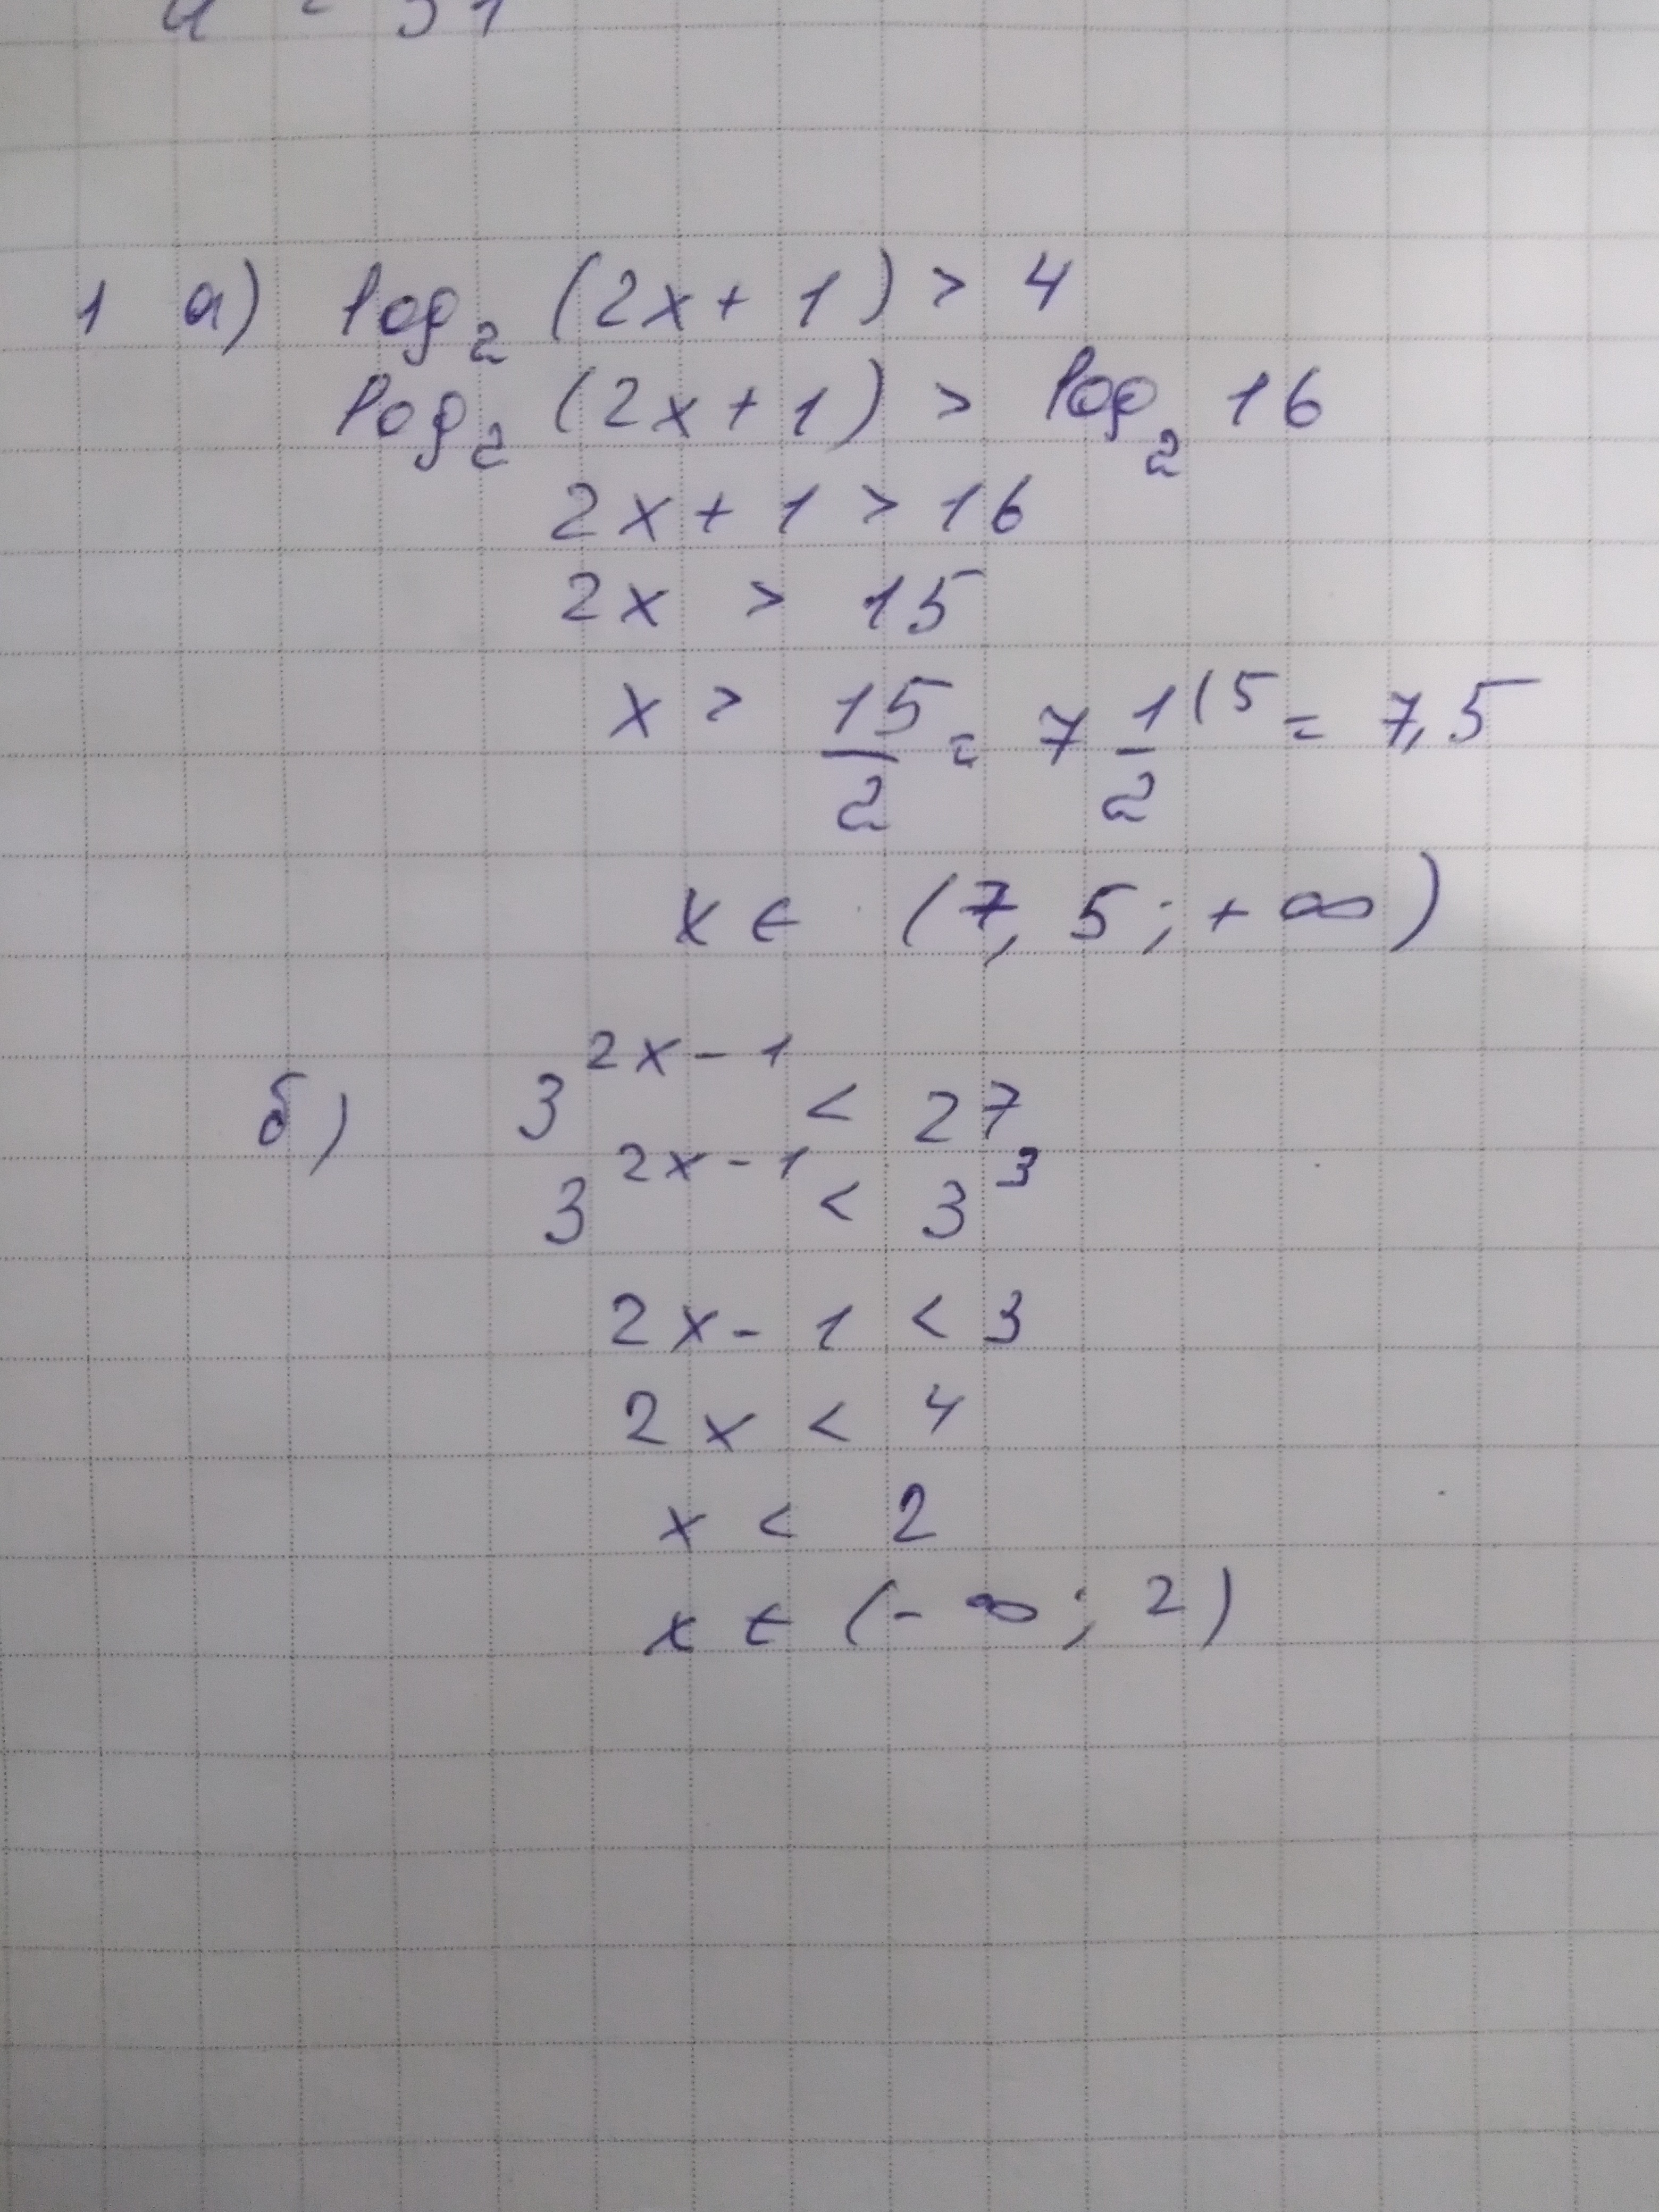 1 а) log₂ (2x + 1) > 4
log₂ (2x + 1) > log₂ 16
2x + 1 > 16
2x > 15
x > 15/2 = 7 1/2 (5 = 7,5
x ∈ (7,5; +∞)
б) 3^(2x-1) < 27
3^(2x-1) < 3³
2x - 1 < 3
2x < 4
x < 2
x ∈ (-∞; 2)